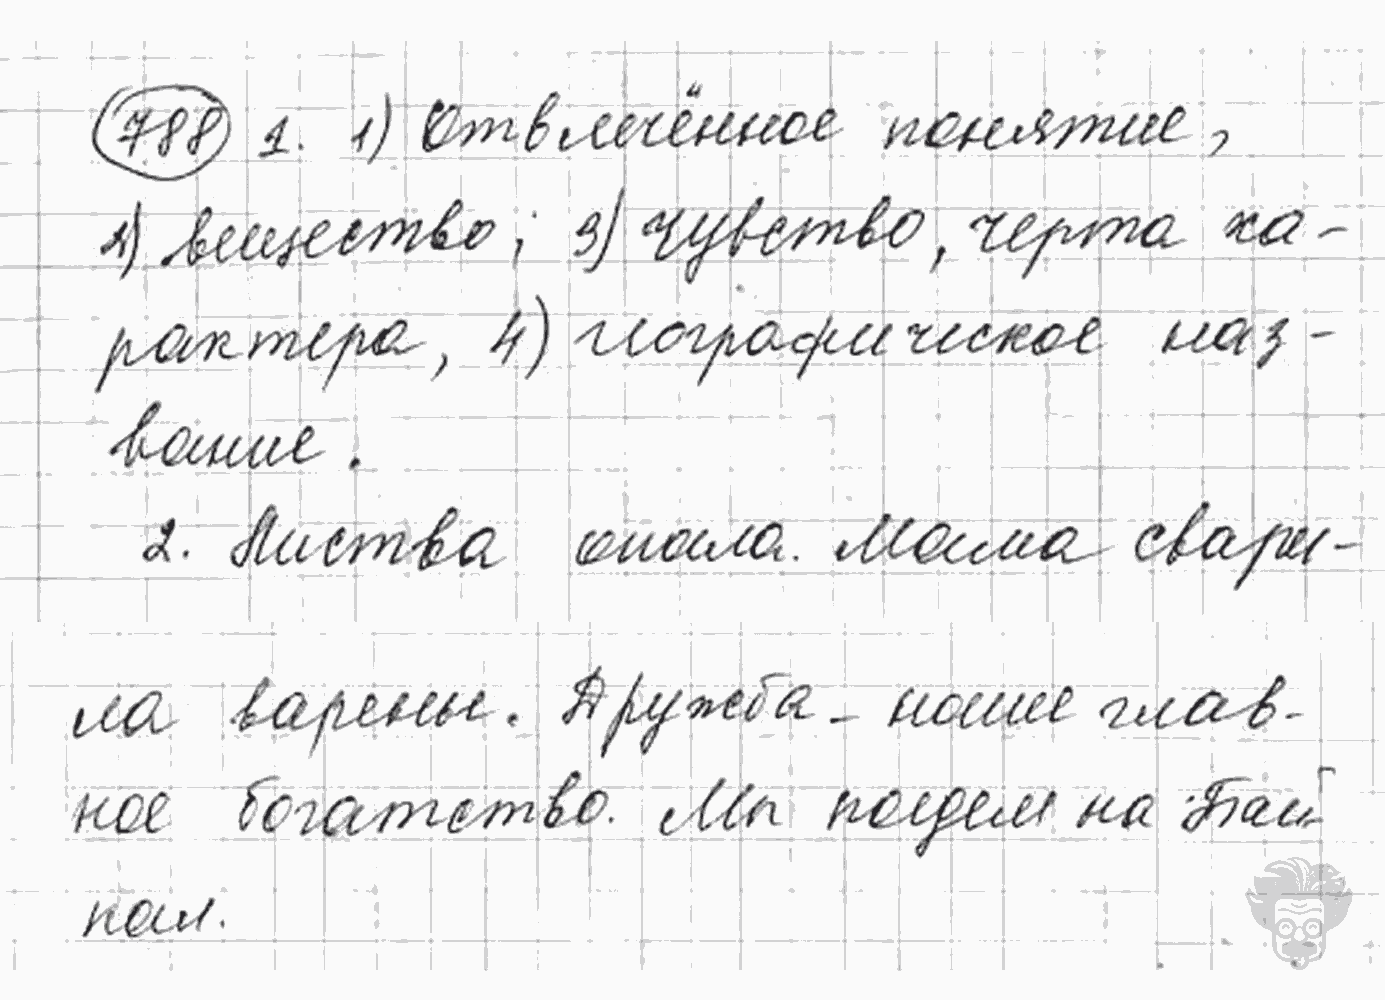 788 1. 1) Отвлечённое понятие,
2) вещество; 3) чувство, черта ха-
рактера, 4) географическое наз-
вание.
2. Листва опала. Мама свари-
ла варенье. Дружба - наше глав-
ное богатство. Мы поедем на Бай-
кал.